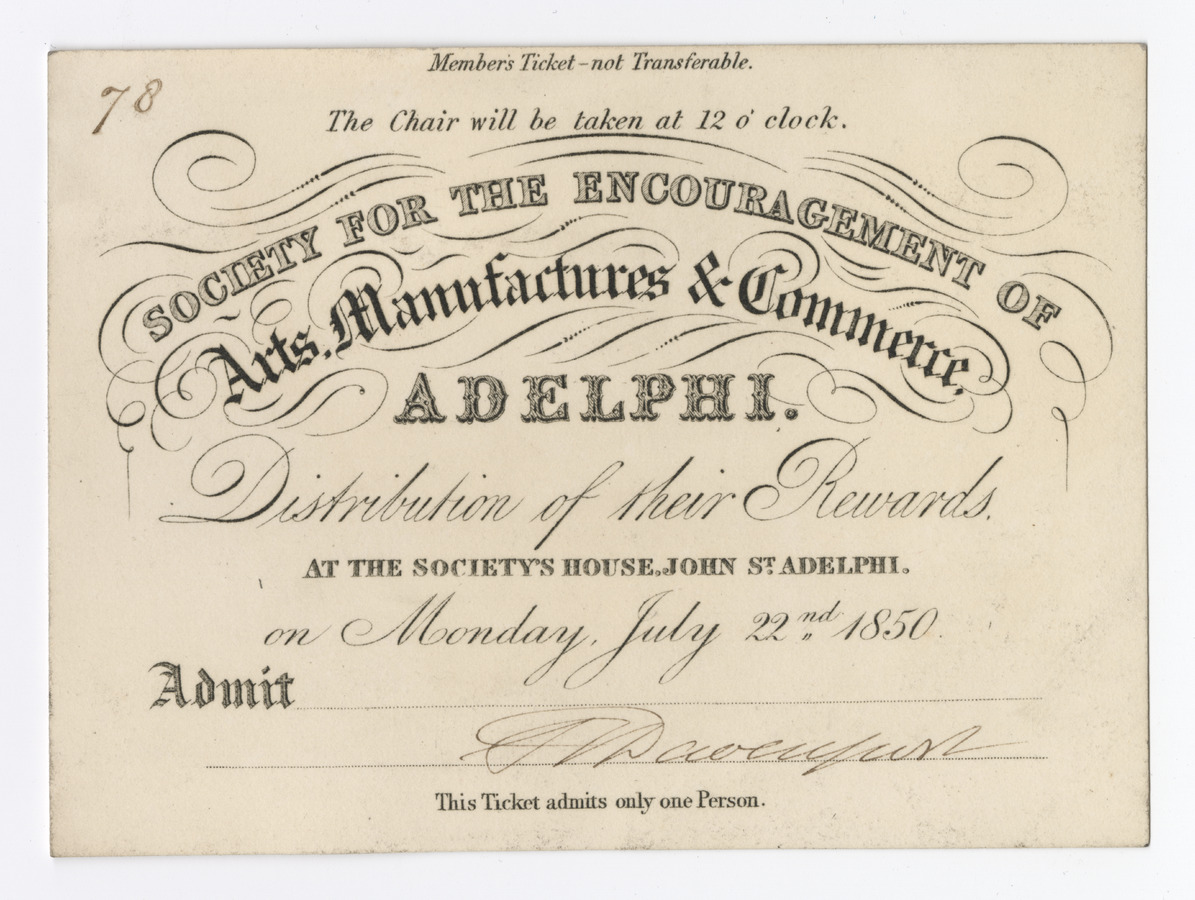 Member's Ticket - not Transferable.
78
The Chair will be taken at 12 o' clock.
SOCIETY FOR THE ENCOURAGEMENT OF
Arts, Manufactures & Commerce,
ADELPHI.
Distribution of their Rewards.
AT THE SOCIETY'S HOUSE, JOHN ST ADELPHI.
on Monday, July 22nd 1850.
Admit
Davenport
This Ticket admits only one Person.